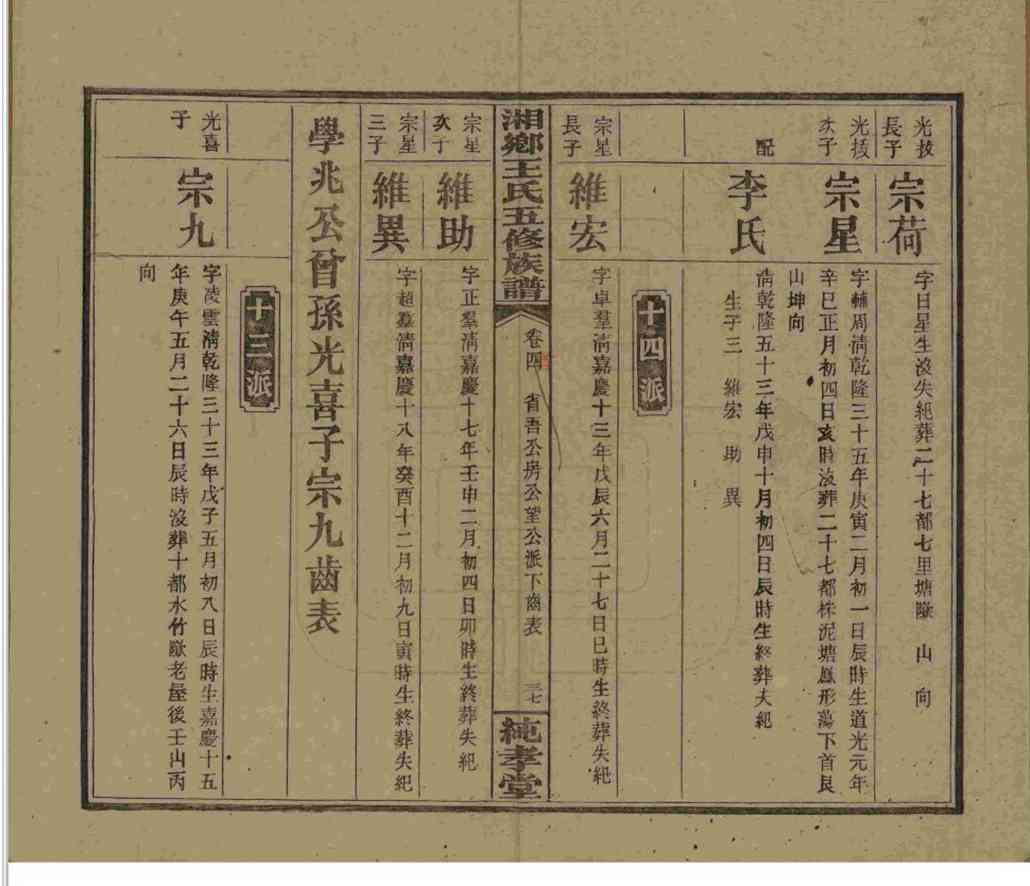 光拔長子
宗荷
字日星生沒失紀葬二十七都七里塘 山 向
光拔次子
宗星
字輔周清乾隆三十五年庚寅二月初一日辰時生道光元年
辛巳正月初四日亥時沒葬二十七都株泥塘鳳形蕩下首艮
山坤向
配
李氏
清乾隆五十三年戊申十月初四日辰時生終葬失紀
生子三 維宏 助 異
十四派
宗星長子
維宏
字卓羣清嘉慶十三年戊辰六月二十七日巳時生終葬失紀
湘鄉王氏五修族譜
卷四 省吾公房公望公派下齒表 三七
純孝堂
宗星次子
維助
字正羣清嘉慶十七年壬申二月初四日卯時生終葬失紀
宗星三子
維異
字超羣清嘉慶十八年癸酉十二月初九日寅時生終葬失紀
學兆公曾孫光喜子宗九齒表
十三派
光喜子
宗九
字凌雲清乾隆三十三年戊子五月初八日辰時生嘉慶十五
年庚午五月二十六日辰時沒葬十都水竹 老屋後壬山丙
向